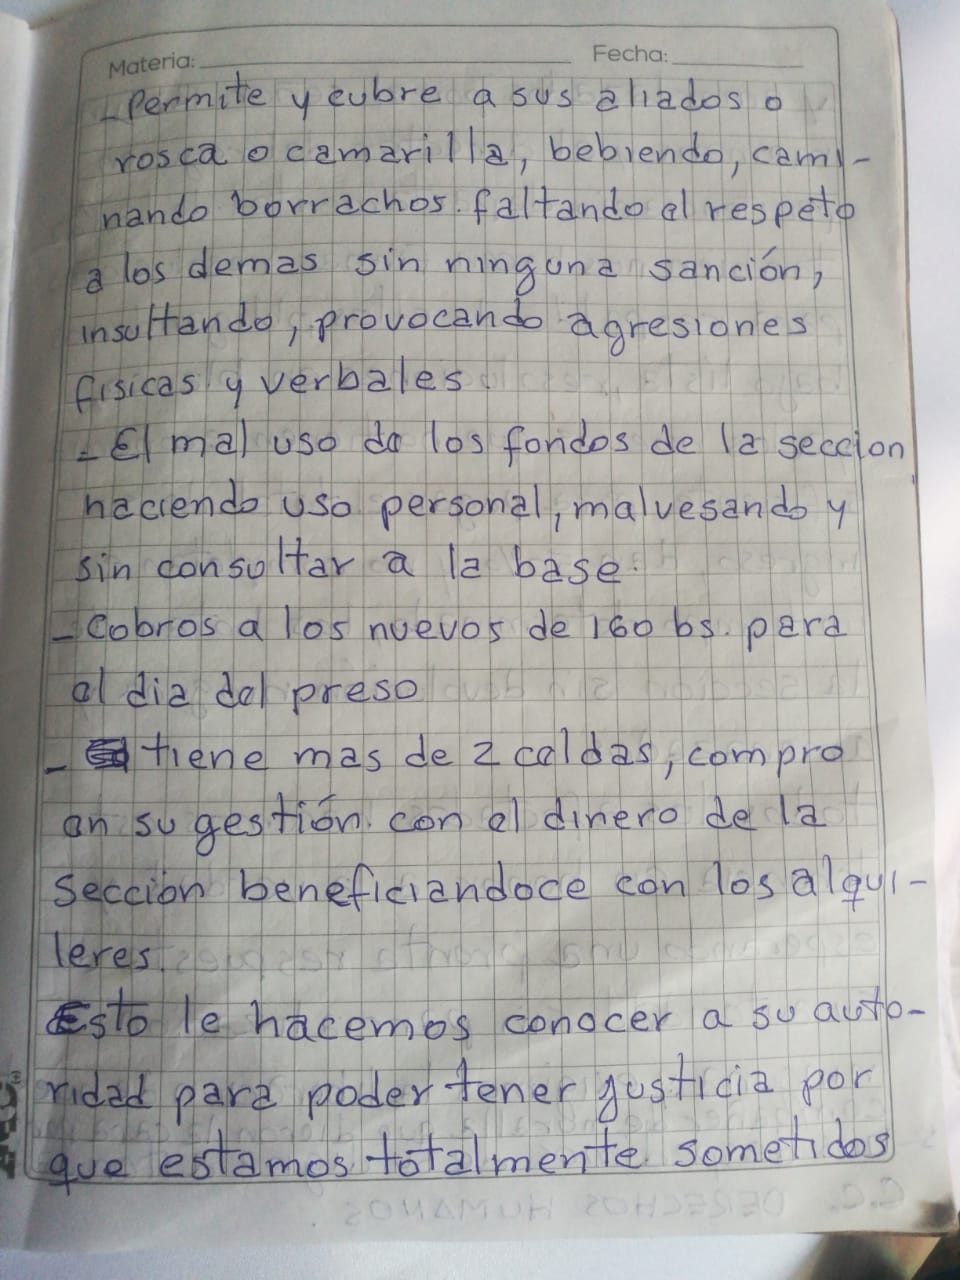 Materia: Fecha:
- Permite y cubre a sus aliados o
rosca o camarilla, bebiendo, cami-
nando borrachos. faltando el respeto
a los demas sin ninguna sanción,
insultando, provocando agresiones
fisicas y verbales
- El mal uso de los fondos de la seccion
haciendo uso personal, malvesando y
sin consultar a la base.
- Cobros a los nuevos de 160 bs. para
el dia del preso
- tiene mas de 2 celdas, compro
en su gestión. con el dinero de la
Sección beneficiandoce con los alqui-
leres.
Esto le hacemos conocer a su auto-
ridad para poder tener justicia por
que estamos totalmente sometidos
C.C. DERECHOS HUMANOS.